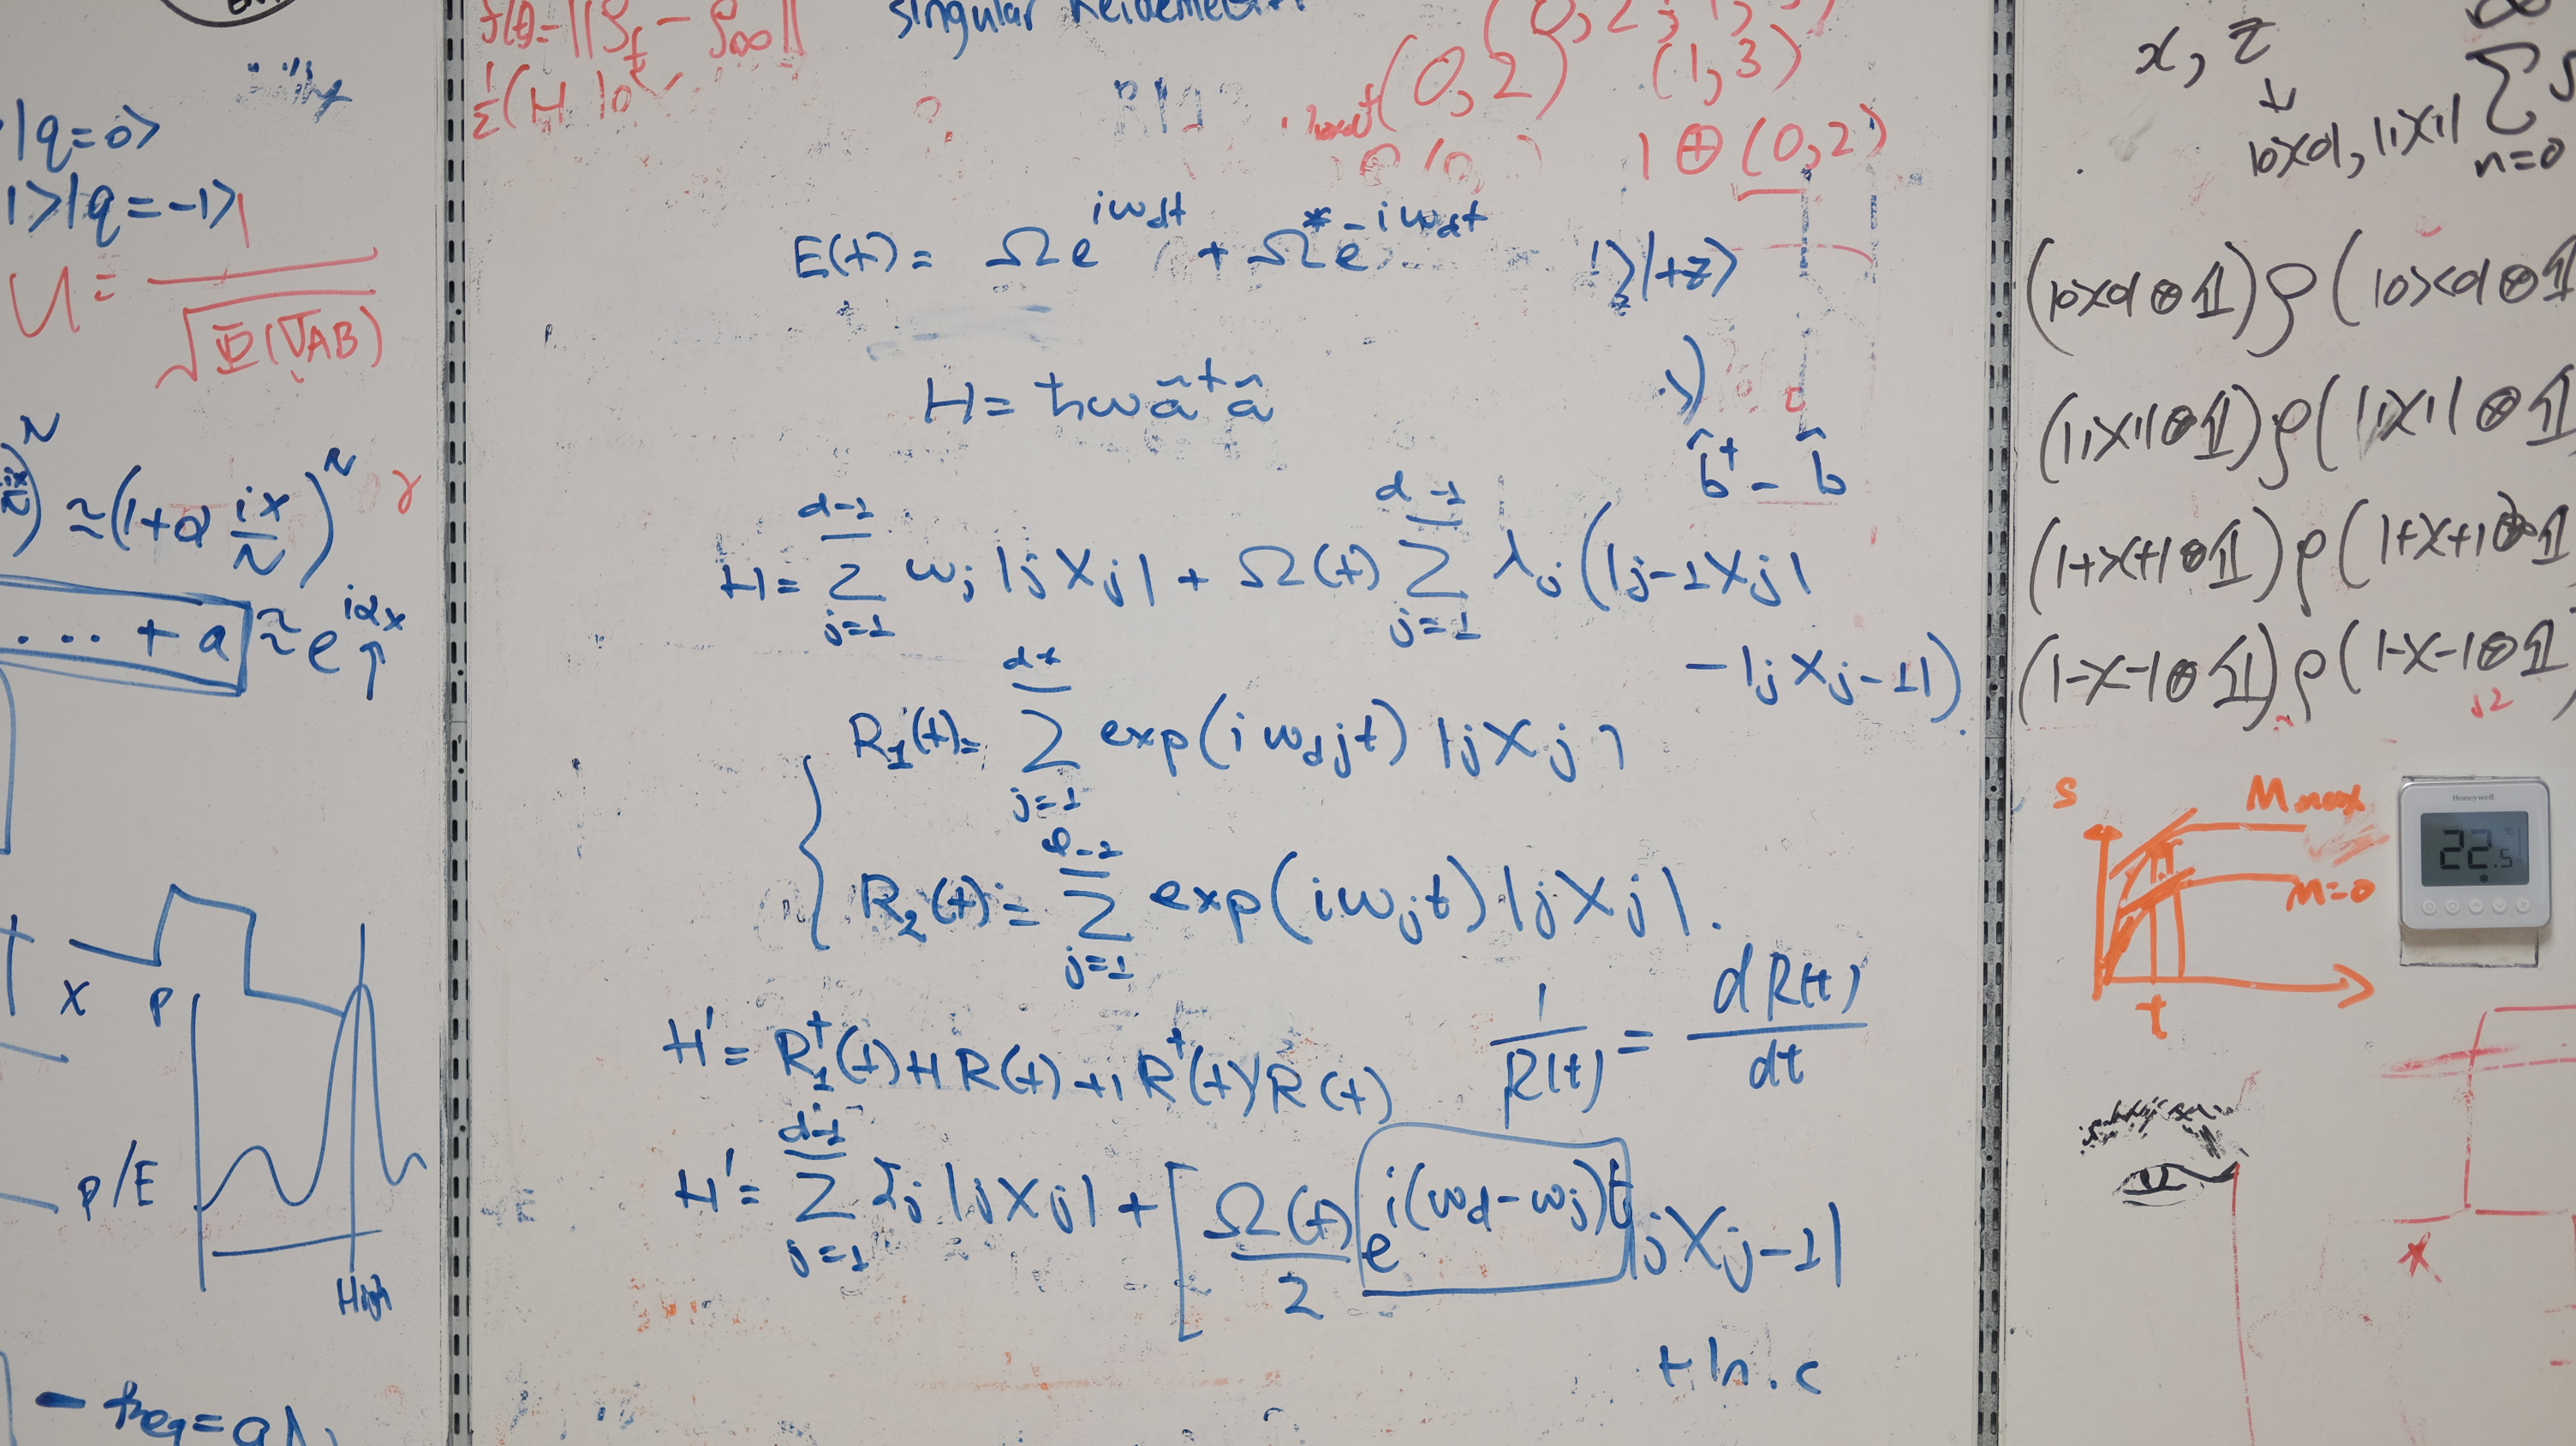 |q=0>
1>|q=-1>
U = 1/√Φ(VAB)
≈(1+a ix/N)^N
... + a ≈ e^{iax}
x
P
P/E
High
f(t)=||ρ_t - ρ_∞||
singular
(0,2) (1,3)
1 ⊕ (0,2)
E(t) = Ω e^{iω_d t} + Ω* e^{-iω_d t}
|+z>
H = ħω â†â
b̂† - b̂
H = Σ_{j=1}^{d-1} ω_j |j><j| + Ω(t) Σ_{j=1}^{d-1} λ_j (|j-1><j|
- |j><j-1|)
R_1(t) = Σ_{j=1} exp(iω_d jt) |j><j|
R_2(t) = Σ_{j=1} exp(iω_j t) |j><j|.
H' = R_1†(t) H R(t) + i R†(t) R(t)
1/R(t) = dR(t)/dt
H' = Σ_{j=1}^{d-1} |j><j| + [Ω(t)/2 e^{i(ω_d-ω_j)t} |j><j-1|
+ h.c
x, z
↓
|0><0|, |1><1|
Σ n=0
(|0><0|⊗𝟙)ρ(|0><0|⊗𝟙
(|1><1|⊗𝟙)ρ(|1><1|⊗𝟙
(|+><+|⊗𝟙)ρ(|+><+|⊗𝟙
(|-><-|⊗𝟙)ρ(|-><-|⊗𝟙)
S
M max
M=0
t
Honeywell
22.5